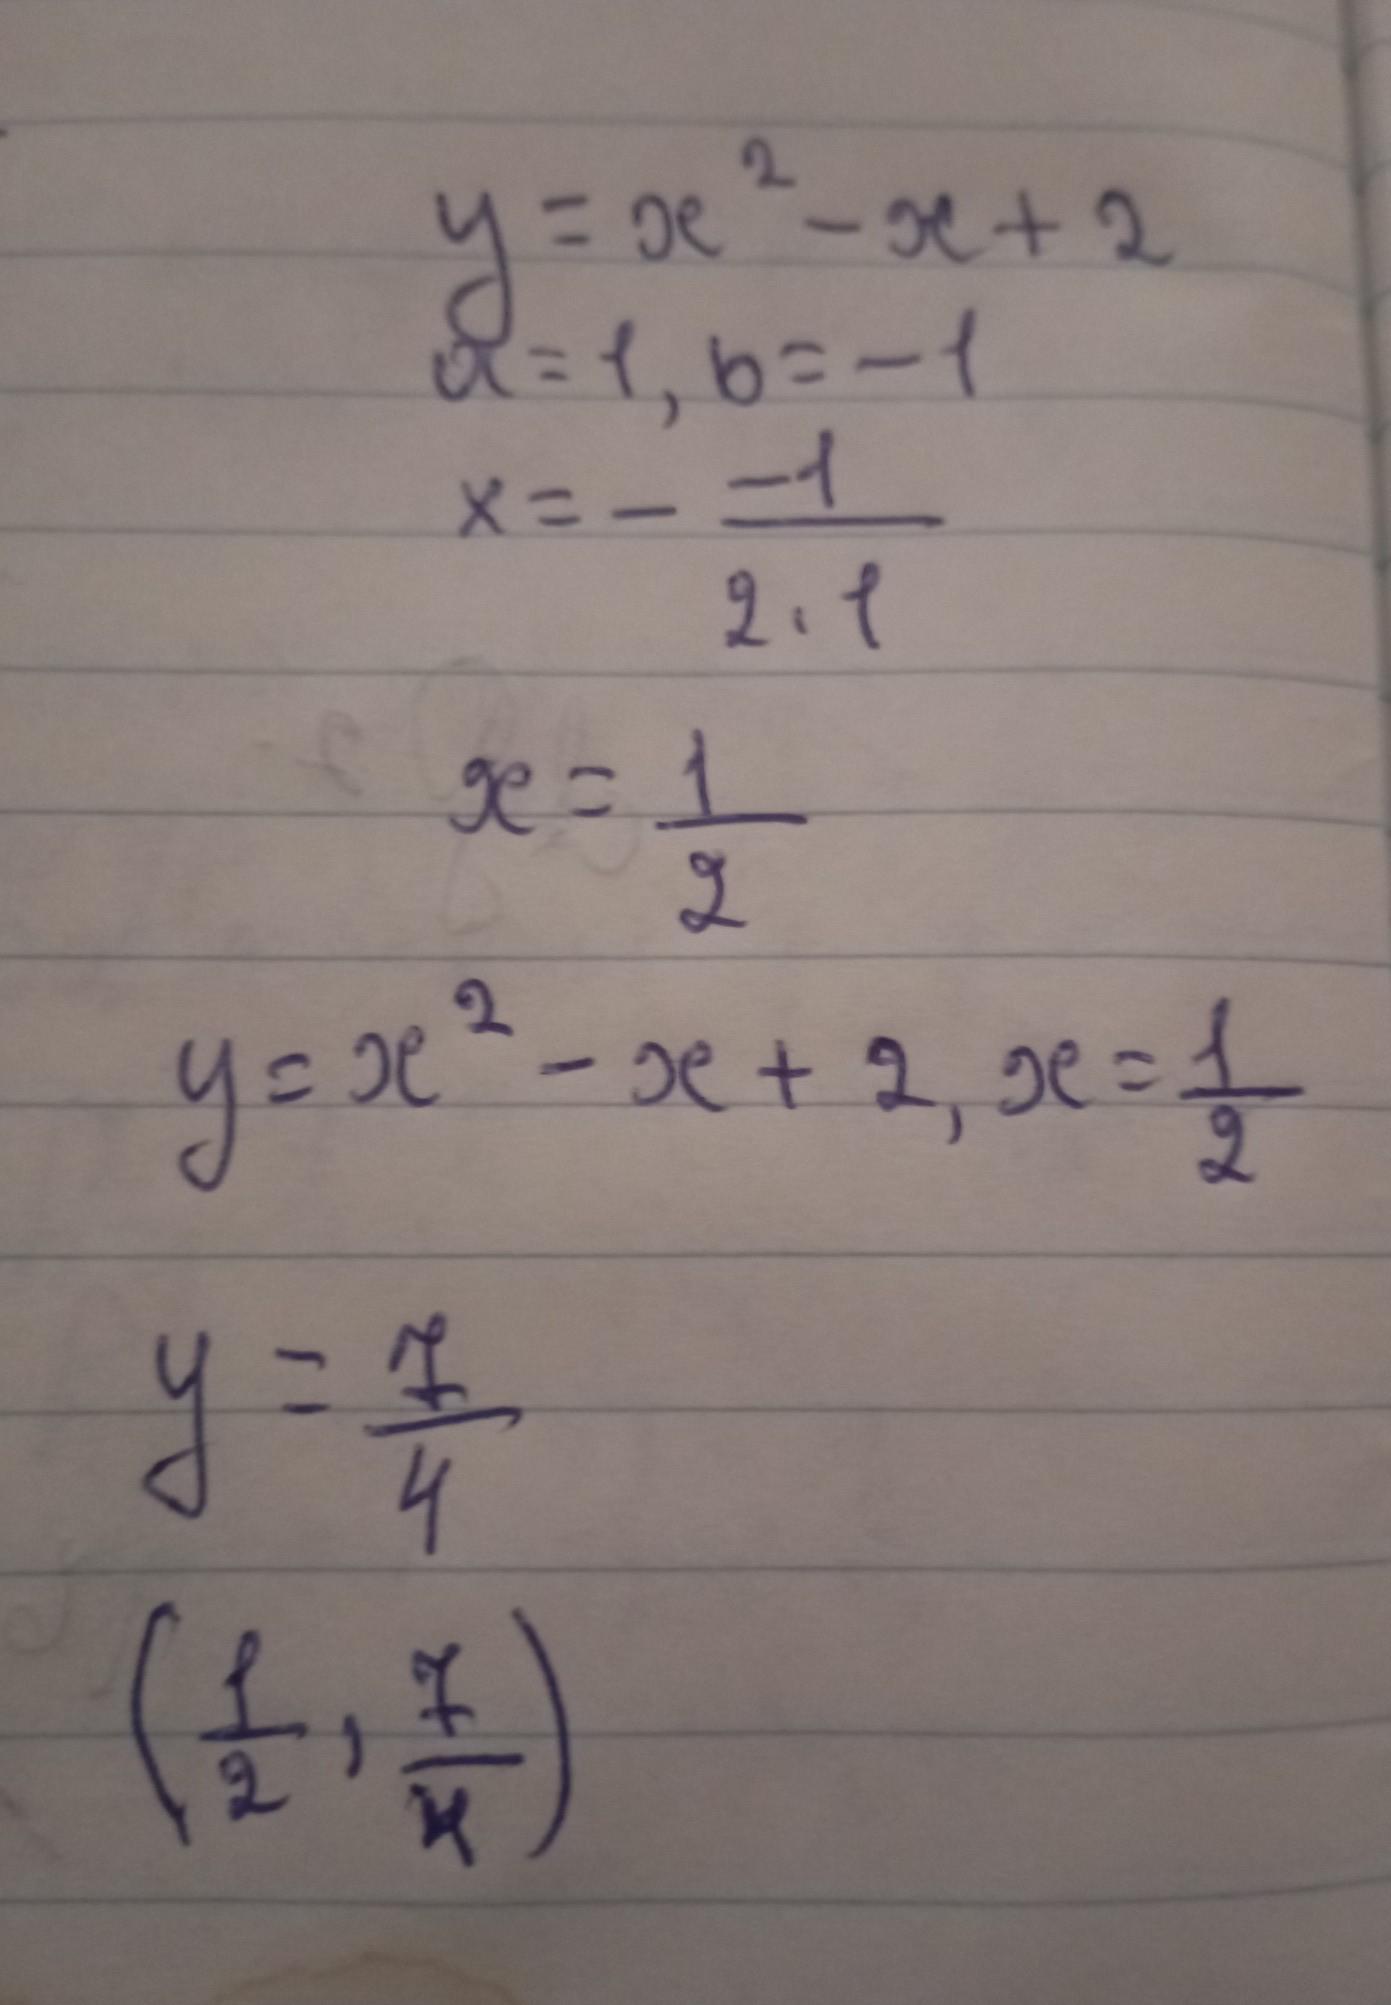 y = x² - x + 2
a = 1, b = -1
x = - -1/2·1
x = 1/2
y = x² - x + 2, x = 1/2
y = 7/4
(1/2, 7/4)